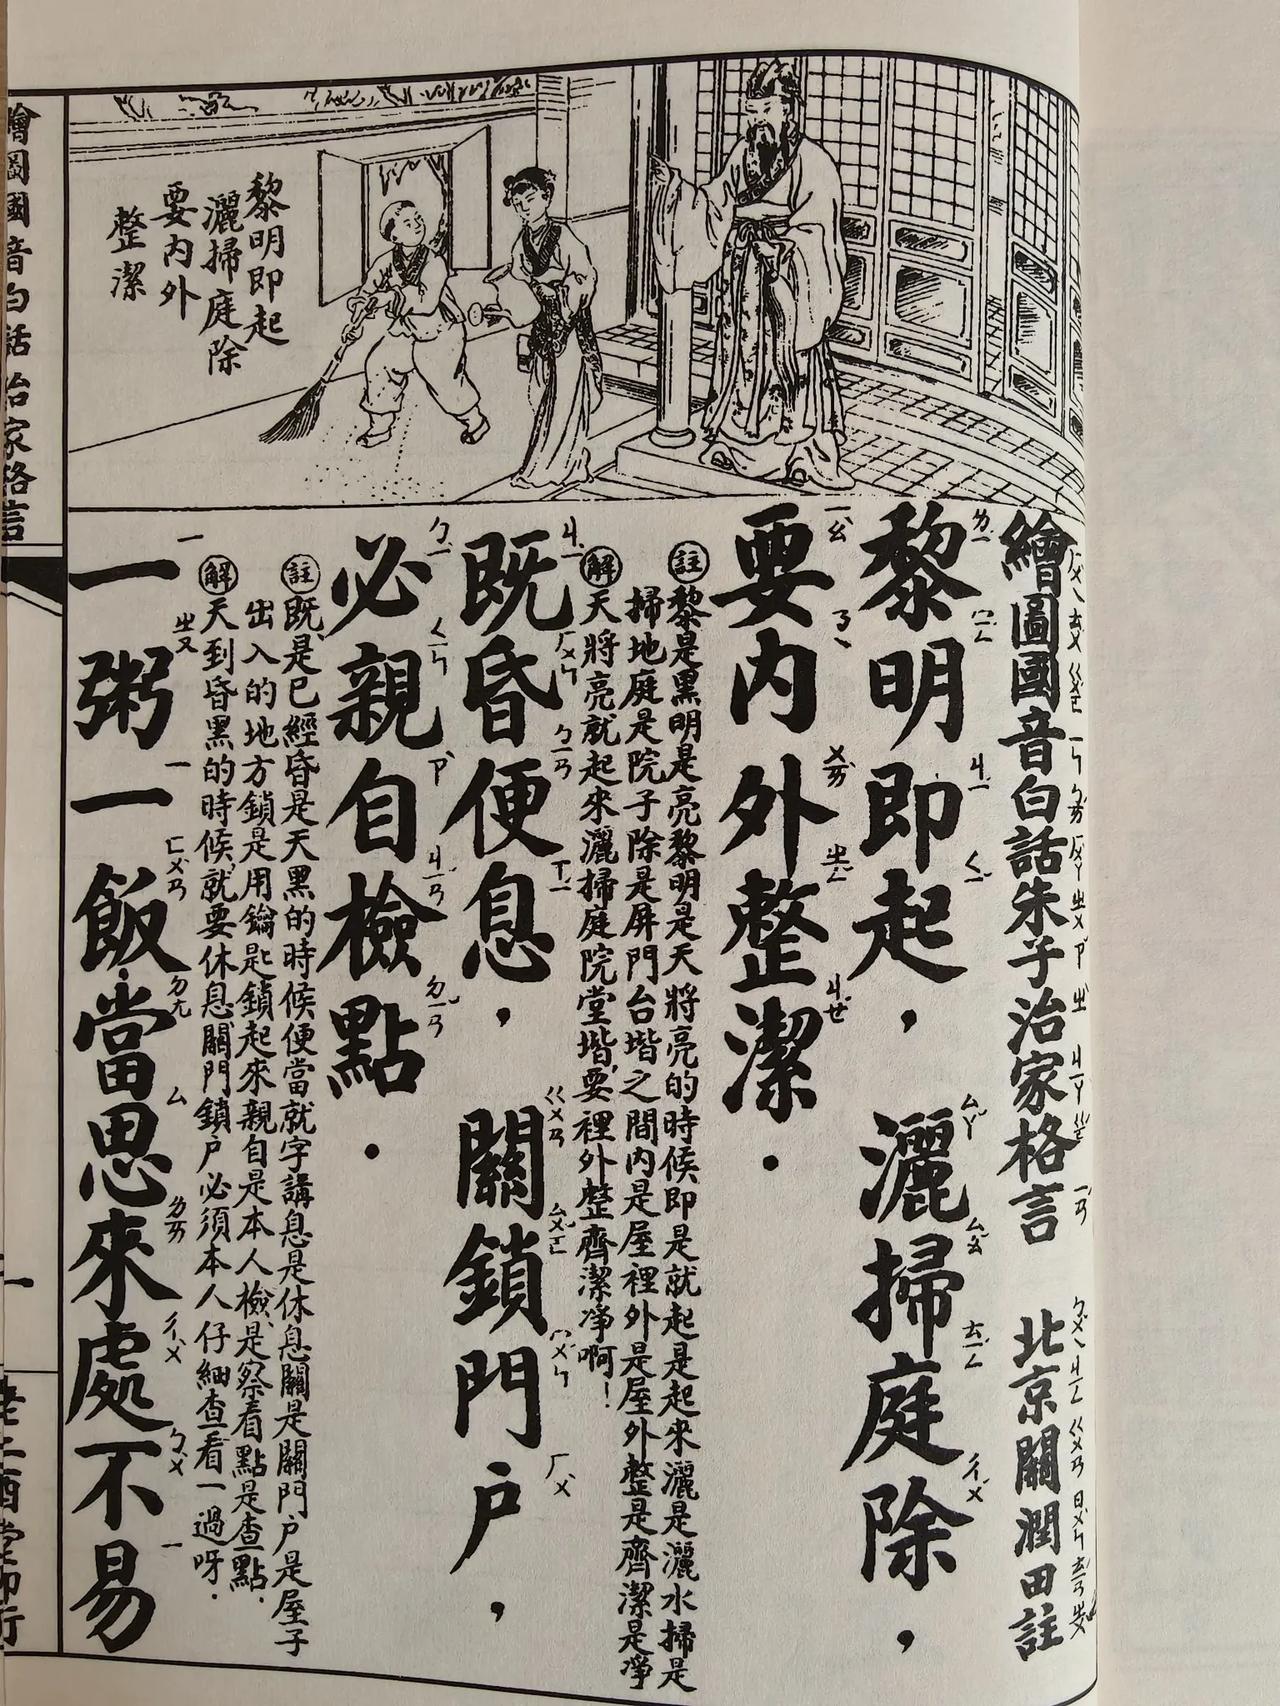 黎明即起
灑掃庭除
要內外
整潔
繪圖國音白話朱子治家格言 北京關潤田註
黎明即起，灑掃庭除，
要內外整潔．
註黎是黑明是亮黎明是天將亮的時候即是就起是起來灑是灑水掃是
掃地庭是院子除是屏門台堦之間內是屋裡外是屋外整是齊潔是淨
解天將亮就起來灑掃庭院堂堦，要裡外整齊潔淨啊！
既昏便息，關鎖門戶，
必親自檢點．
註既是已經昏是天黑的時候便當就字講息是休息關是關門戶是屋子
出入的地方鎖是用鑰匙鎖起來親自是本人檢是察看點是查點．
解天到昏黑的時候，就要休息，關門鎖戶必須本人仔細查看一過呀．
一粥一飯當思來處不易
繪圖國音白話 治家格言
一